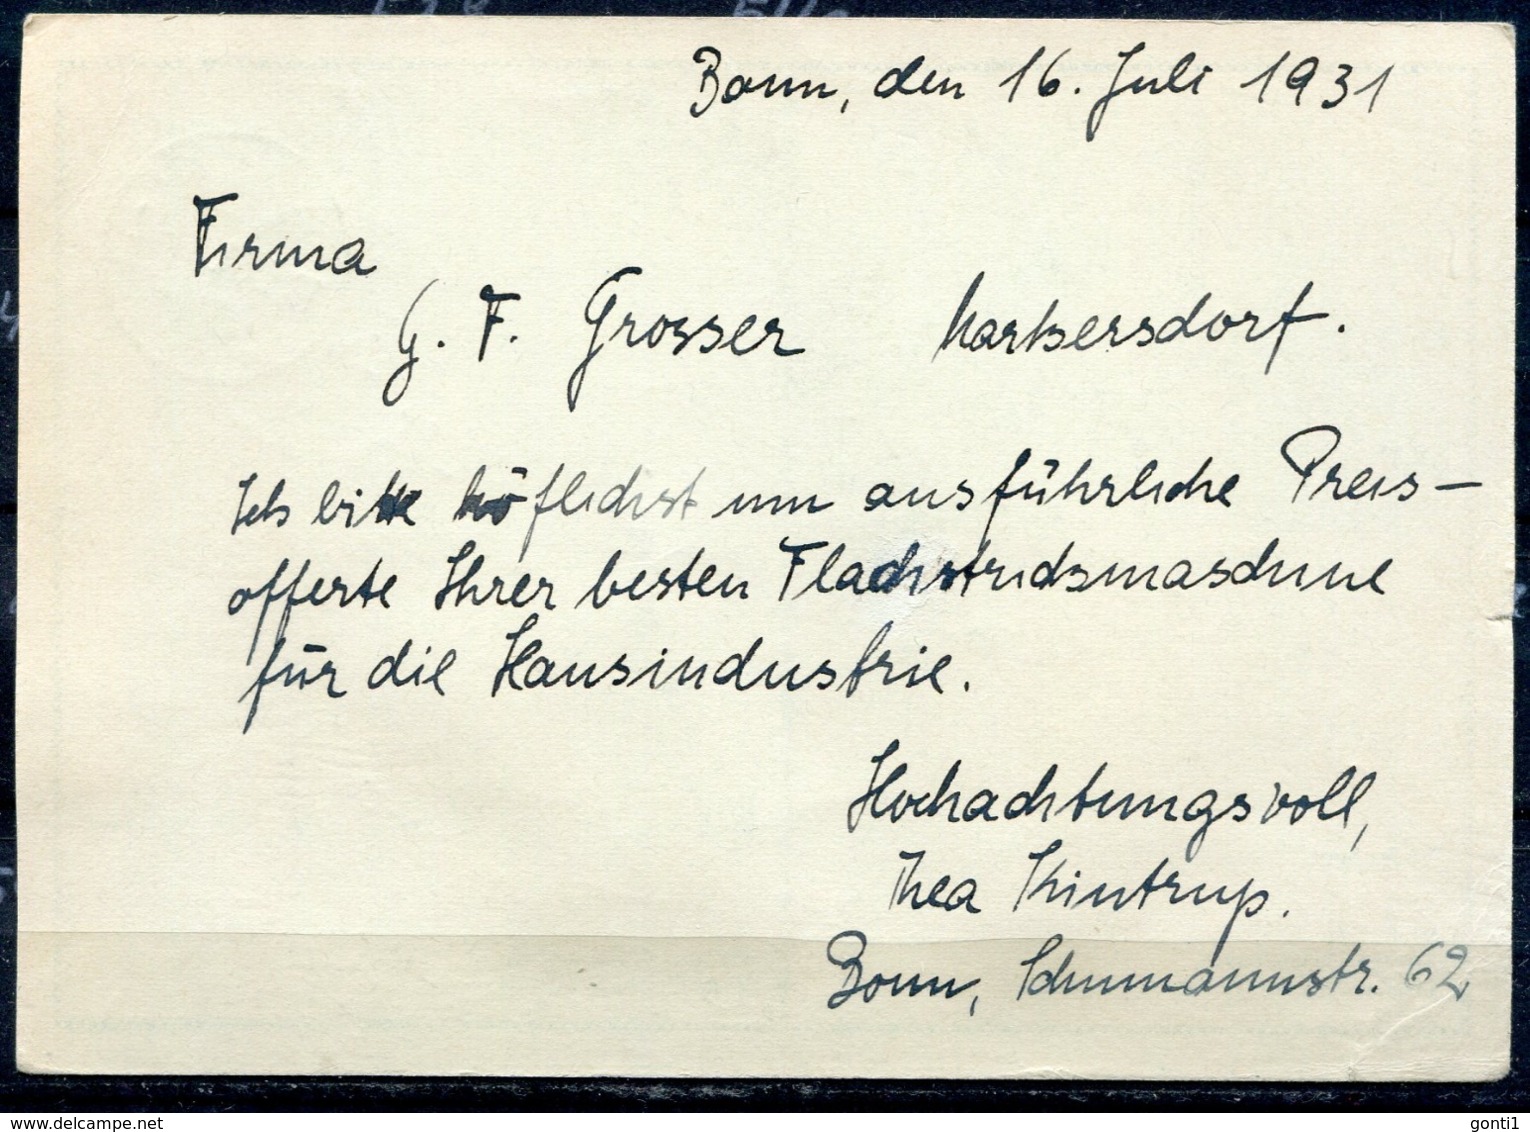 Bonn, den 16. Juli 1931
Firma
G. F. Grosser Markersdorf.
Ich bitte höflichst um ausführliche Preis-
offerte Ihrer besten Flachstrickmaschine
für die Hausindustrie.
Hochachtungsvoll,
Thea Kintrup.
Bonn, Schumannstr. 62
delcampe.net
gonti1